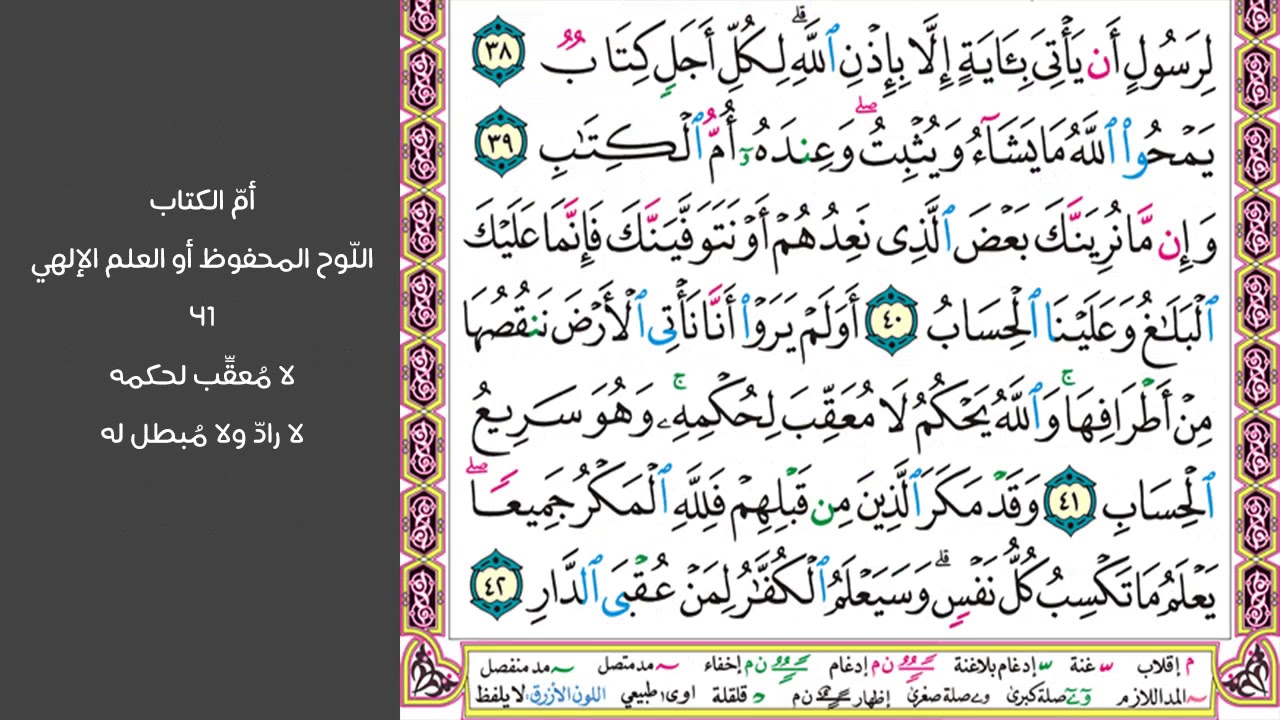 أمّ الكتاب
اللّوح المحفوظ أو العلم الإلهي
٤١
لا مُعقِّب لحكمه
لا رادّ ولا مُبطل له
لِرَسُولٍ أَن يَأْتِىَ بِـَٔايَةٍ إِلَّا بِإِذْنِ ٱللَّهِ ۗ لِكُلِّ أَجَلٍ كِتَابٌ ٣٨
يَمْحُوا۟ ٱللَّهُ مَا يَشَآءُ وَيُثْبِتُ ۖ وَعِندَهُۥٓ أُمُّ ٱلْكِتَـٰبِ ٣٩
وَإِن مَّا نُرِيَنَّكَ بَعْضَ ٱلَّذِى نَعِدُهُمْ أَوْ نَتَوَفَّيَنَّكَ فَإِنَّمَا عَلَيْكَ
ٱلْبَلَـٰغُ وَعَلَيْنَا ٱلْحِسَابُ ٤٠ أَوَلَمْ يَرَوْا۟ أَنَّا نَأْتِى ٱلْأَرْضَ نَنقُصُهَا
مِنْ أَطْرَافِهَا ۚ وَٱللَّهُ يَحْكُمُ لَا مُعَقِّبَ لِحُكْمِهِۦ ۚ وَهُوَ سَرِيعُ
ٱلْحِسَابِ ٤١ وَقَدْ مَكَرَ ٱلَّذِينَ مِن قَبْلِهِمْ فَلِلَّهِ ٱلْمَكْرُ جَمِيعًا ۖ
يَعْلَمُ مَا تَكْسِبُ كُلُّ نَفْسٍ ۗ وَسَيَعْلَمُ ٱلْكُفَّـٰرُ لِمَنْ عُقْبَى ٱلدَّارِ ٤٢
م إقلاب غنة إدغام بلاغنة ن م إدغام ن م إخفاء مد متصل مد منفصل
المد اللازم صلة كبرى صلة صغرى إظهار ن م قلقلة اوى؛ طبيعي اللون الأزرق: لا يلفظ